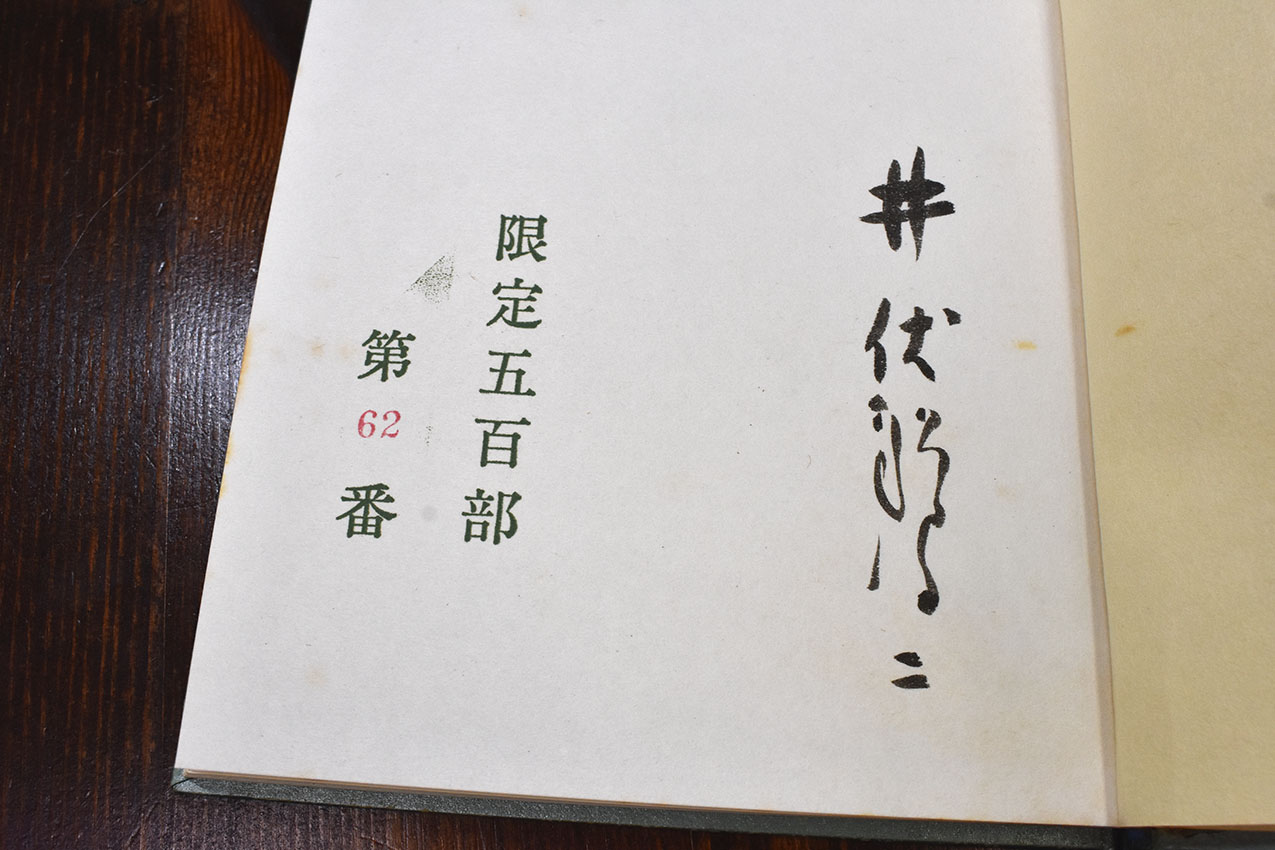 井伏鱒二
限定五百部
第62番